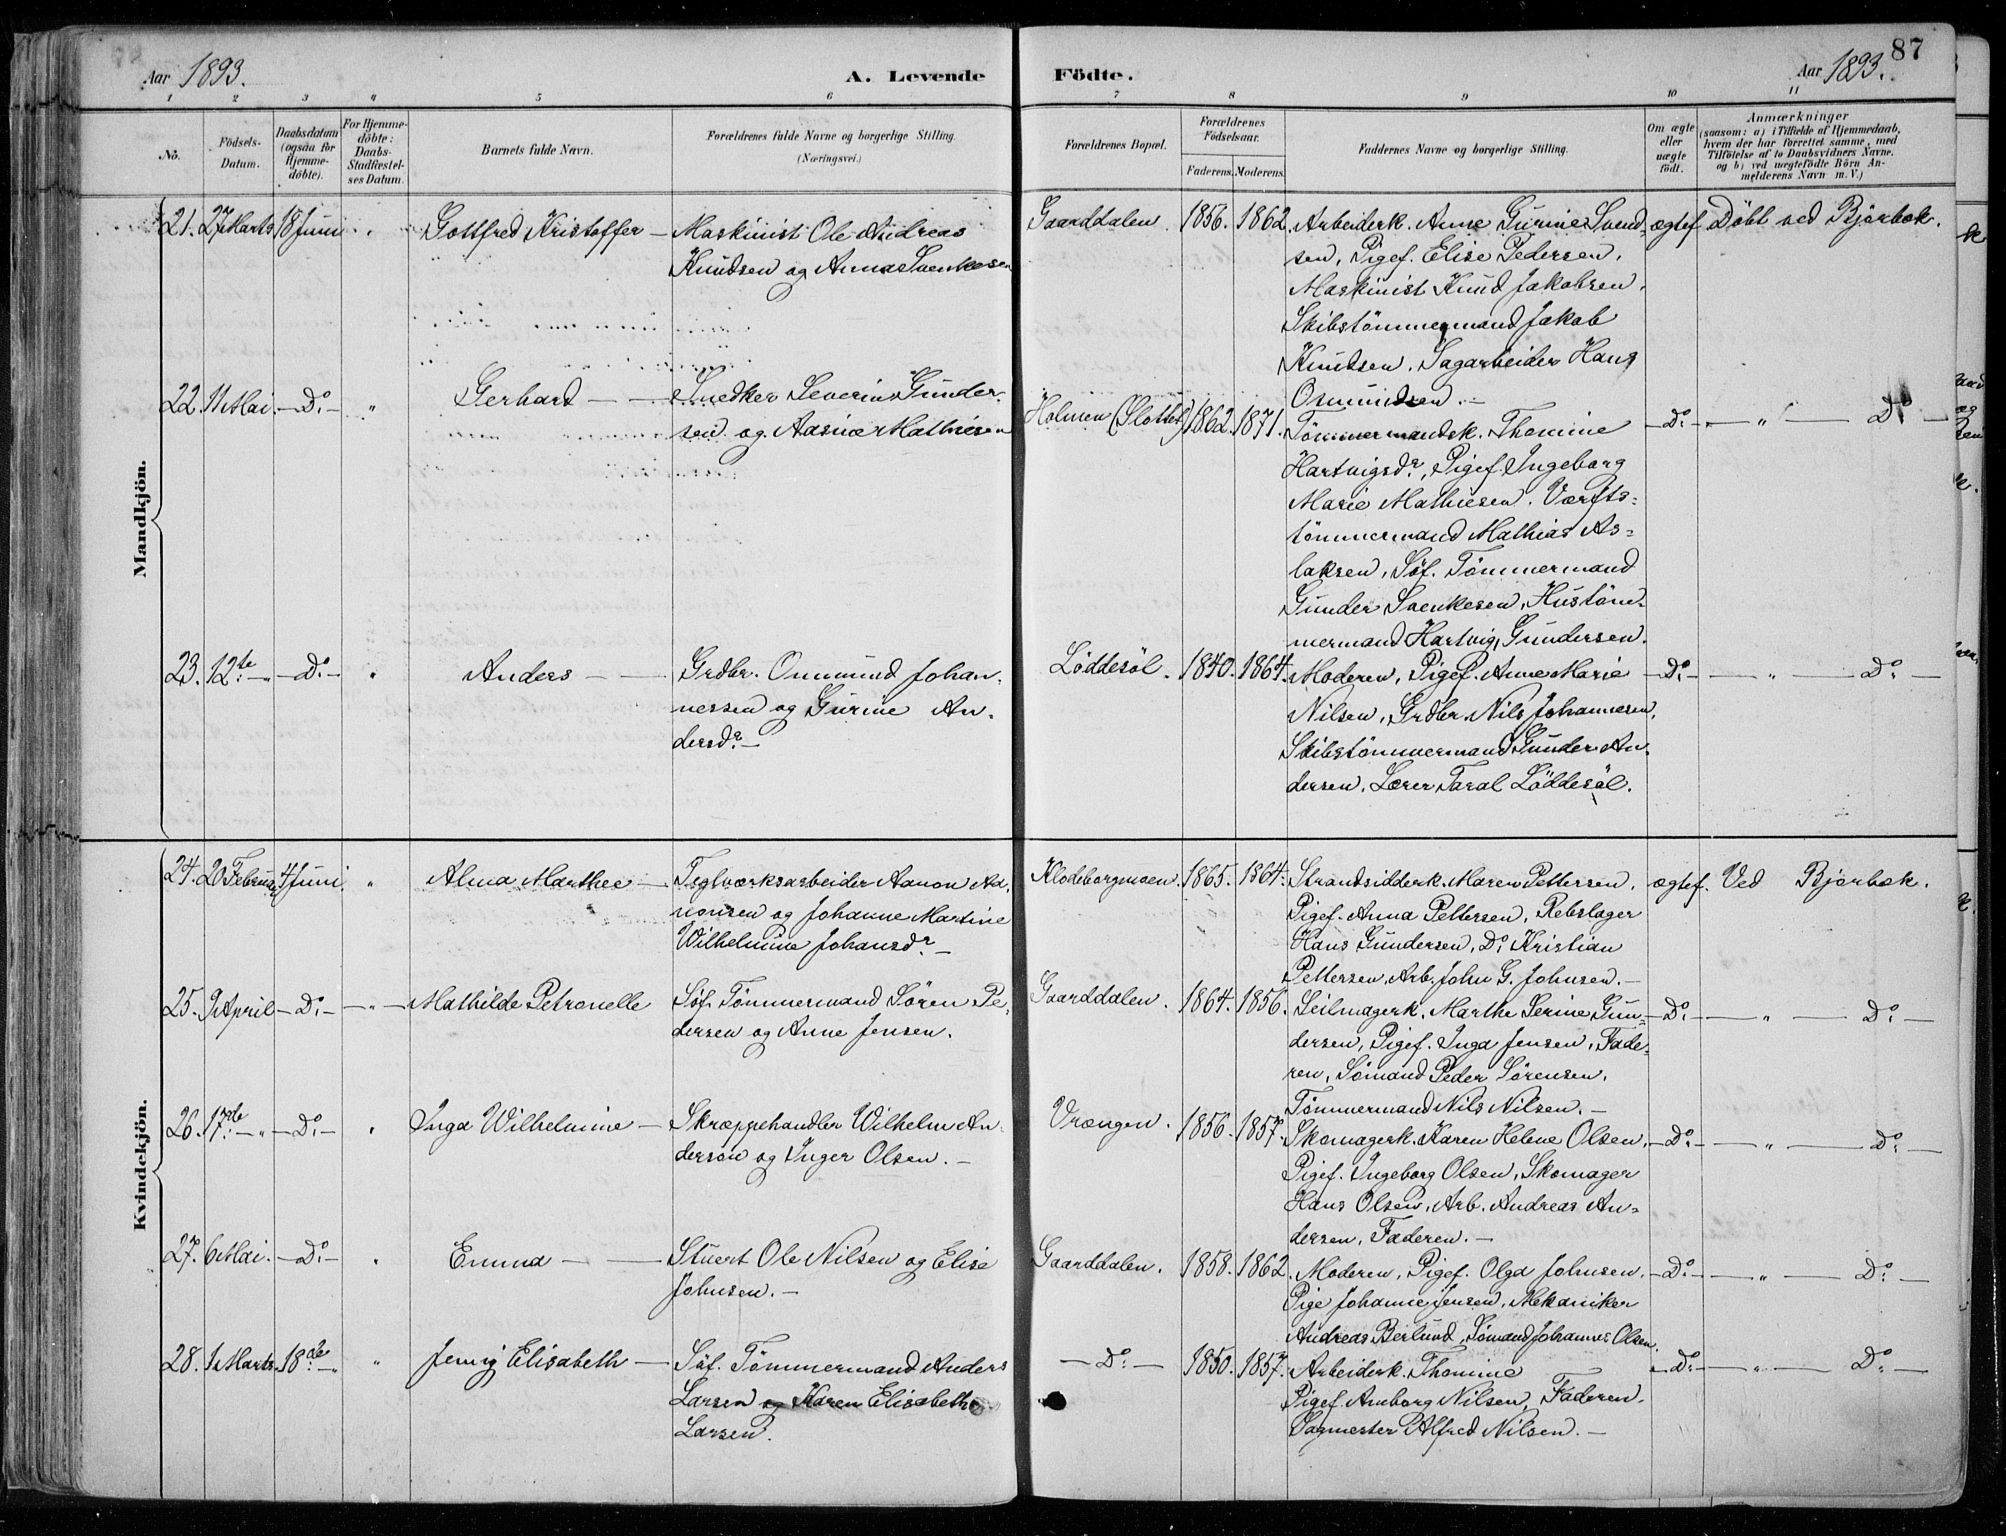 87
Aar 1893. A. Levende Födte. Aar 1893.
1 2 3 4 5 6 7 8 9 10 11
No.
Födsels-
Datum.
Daabsdatum
(ogsaa for
Hjemme-
döbte).
For Hjemme-
döbte:
Daabs-
Stadfæstel-
ses Datum.
Barnets fulde Navn.
Forældrenes fulde Navne og borgerlige Stilling.
(Næringsvei.)
Forældrenes Bopæl.
Forældrenes
Födselsaar.
Faderens. Moderens.
Faddernes Navne og borgerlige Stilling.
Om ægte
eller
uægte
födt.
Anmærkninger
(saasom: a) i Tilfælde af Hjemmedaab,
hvem der har forrettet samme, med
Tilföielse af to Daabsvidners Navne.
og b) ved uægtefödte Börn An-
melderens Navn m. V.)
Mandkjön.
21. 27 Marts 18 Juni " Gottfred Kristoffer — Maskinist Ole Andreas
Knudsen og Anna Svenkesen
Gaarddalen. 1856. 1862. Arbeiderk. Anne Gurine Svend- ægtef. Döbt ved Bjorbæk.
sen, Pigef. Elise Pedersen,
Maskinist Knud Jakobsen,
Skibstömmermand Jakob
Knudsen, Sagarbeider Hans
Osmundsen. —
22. 11 Mai. — Do. — " Gerhard — Snedker Severin Gunder-
sen og Aasine Mathiesen
Holmen (Slottet) 1862. 1871. Tömmermandsk. Thomine — Do. — " — Do —
Hartvigsdr, Pigef. Ingeborg
Marie Mathiesen. Værfts-
tömmermand Mathias As-
laksen, Söf. Tömmermand
Gunder Svenkesen, Hustöm-
mermand Hartvig Gundersen.
23. 12te — " — Do — " Anders — Grdbr. Onmund Johan-
nessen og Gurine An-
dersdr. —
Löddesöl. 1840. 1864. Moderen, Pigef. Anne Marie — Do. — " — Do. —
Nilsen, Grdbr. Nils Johannesen,
Skibstömmermand Gunder An-
dersen, Lærer Taral Löddesöl.
Kvindekjön.
24. 20 Februar 4 Juni " Alma Marthee — Teglværksarbeider Aanon Aa-
nonsen og Johanne Martine
Wilhelmine Johansdr. —
Klodeborgmoen. 1865. 1864. Strandsidderk. Maren Pettersen, ægtef. Ved Bjorbæk.
Pigef. Anna Pettersen, Rebslager
Hans Gundersen, Do. Kristian
Pettersen, Arb. John G. Johnsen. —
25. 9 April — Do. — " — Mathilde Petronelle Söf. Tömmermand Sören Pe-
dersen og Anne Jensen.
Gaarddalen. 1864. 1856. Seilmagerk. Marthe Serine Gun- — Do. — " — Do. —
dersen, Pigef. Inga Jensen, Fade-
ren, Sömand Peder Sörensen,
Tömmermand Nils Nilsen. —
26. 17de — " — Do. — " Inga Wilhelmine — Skræppehandler Wilhelm An-
derson og Inger Olsen. —
Vrængen. 1856. 1857. Skomagerk. Karen Helene Olsen, — Do. — " — Do. —
Pigef. Ingeborg Olsen, Skomager
Hans Olsen, Arb. Andreas An-
dersen, Faderen. —
27. 6 Mai. — Do. — " Emma — Stuert Ole Nilsen og Elise
Johnsen. —
Gaarddalen. 1858. 1862. Moderen, Pigef. Olga Johnsen, — Do. — " — Do. —
Pige Johanne Jensen, Mekaniker
Andreas Berlund, Sömand Johannes Olsen.
28. 1 Marts 18de — " — " Jenny Elisabeth — Söf. Tömmermand Anders
Larsen og Karen Elisabeth
Larsen.
— Do. — 1850. 1857. Arbeiderk. Thomine — Do. — " — Do. —
Pigef. Amborg Nilsen, Faderen,
Sagmester Alfred Nilsen. —